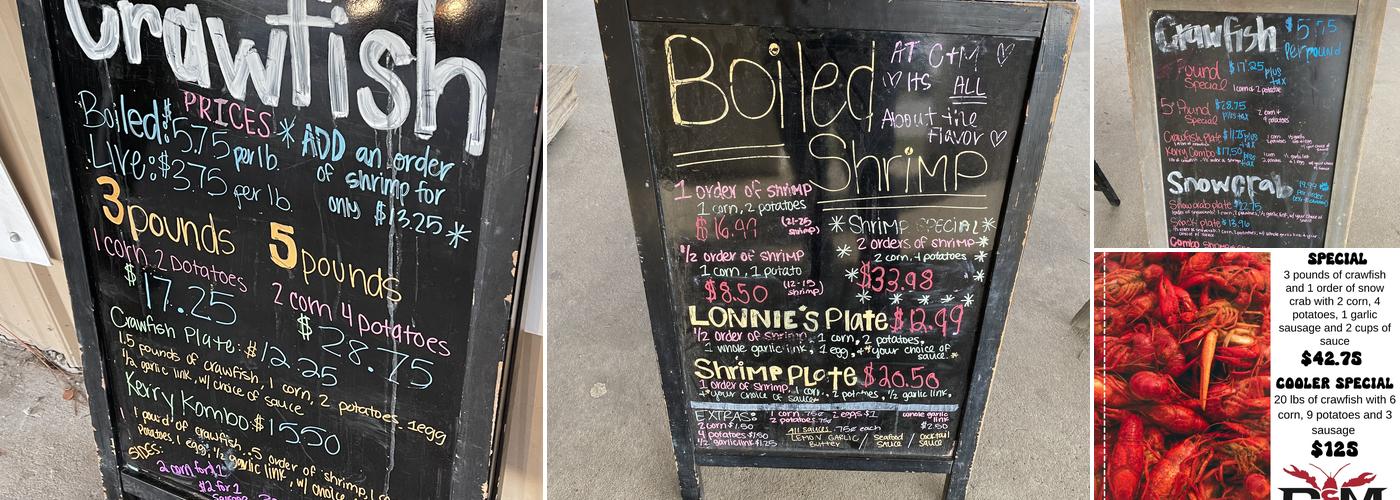 Crawfish
PRICES
Boiled: $5.75 per lb.
Live: $3.75 per lb.
* ADD an order
of shrimp for
only $13.25 *
3 pounds
1 corn, 2 potatoes
$17.25
5 pounds
2 corn 4 potatoes
$28.75
Crawfish Plate: $12.25
1.5 pounds of crawfish, 1 corn, 2 potatoes, 1 egg
1/2 garlic link, w/ choice of sauce
Kerry Kombo: $15.50
1 pound of crawfish, .5 order of shrimp, 1 corn
Potatoes, 1 egg, 1/2 garlic link, w/ choice
SIDES:
2 corn for $1
$2 for 1
Boiled
Shrimp
AT C+M
♡ Its ALL
About the
flavor ♡
1 order of shrimp
1 corn, 2 potatoes
$16.99 (21-25 shrimp)
1/2 order of shrimp
1 corn, 1 potato
$8.50 (12-15 shrimp)
* Shrimp SPECIAL *
2 orders of shrimp
2 corn, 4 potatoes
$33.98
LONNIE'S Plate $12.99
1/2 order of shrimp, 1 corn, 2 potatoes,
1 whole garlic link, 1 egg, + *your choice of
sauce.*
Shrimp Plate $20.50
1 order of shrimp, 1 corn, 2 potatoes, 1/2 garlic link,
+*your choice of sauce*
EXTRAS: 1 corn .75¢ 2 eggs $1
2 corn $1.50
4 potatoes $1.50
1/2 garlic link $1.25
2 potatoes .75¢
whole garlic
link
$2.50
All sauces .75¢ each
LEMON GARLIC
Butter
Seafood
Sauce
Cocktail
Sauce
Crawfish $5.75
Per pound
Pound
Special
$17.25 plus
tax
1 corn 2 potatoe
5 Pound
Special
$28.75
plus tax
2 corn 4
potatoes
Crawfish Plate
Kerry Combo $17.50
Snowcrab
Snowcrab plate
SPECIAL
3 pounds of crawfish
and 1 order of snow
crab with 2 corn, 4
potatoes, 1 garlic
sausage and 2 cups of
sauce
$42.75
COOLER SPECIAL
20 lbs of crawfish with 6
corn, 9 potatoes and 3
sausage
$125